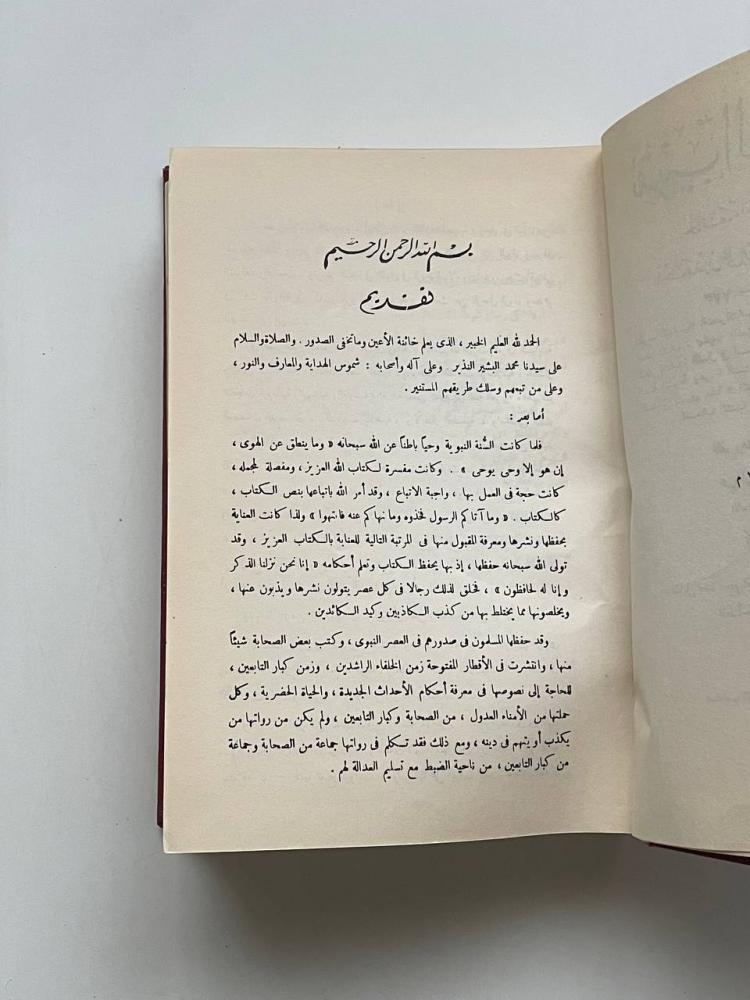 بسم الله الرحمن الرحيم
تقديم
الحمد لله العليم الخبير ، الذى يعلم خائنة الأعين وماتخفى الصدور . والصلاة والسلام
على سيدنا محمد البشير النذير وعلى آله وأصحابه : شموس الهداية والمعارف والنور ،
وعلى من تبعهم وسلك طريقهم المستنير .
أما بعد :
فلما كانت السُّنة النبوية وحياً باطناً عن الله سبحانه « وما ينطق عن الهوى ،
إن هو إلا وحى يوحى » . وكانت مفسرة لكتاب الله العزيز ، ومفصلة لمجمله ،
كانت حجة فى العمل بها ، واجبة الاتباع ، وقد أمر الله باتباعها بنص الكتاب ،
كالكتاب . « وما آتاكم الرسول فخذوه وما نهاكم عنه فانتهوا » ولذا كانت العناية
بحفظها ونشرها ومعرفة المقبول منها فى المرتبة التالية للعناية بالكتاب العزيز ، وقد
تولى الله سبحانه حفظها ، إذ بها يحفظ الكتاب وتعلم أحكامه « إنا نحن نزلنا الذكر
وإنا له لحافظون » ، فخلق لذلك رجالا فى كل عصر يتولون نشرها ويذبون عنها ،
ويخلصونها مما يختلط بها من كذب الكاذبين وكيد الكائدين .
وقد حفظها المسلمون فى صدورهم فى العصر النبوى ، وكتب بعض الصحابة شيئاً
منها ، وانتشرت فى الأقطار المفتوحة زمن الخلفاء الراشدين ، وزمن كبار التابعين ،
للحاجة إلى نصوصها فى معرفة أحكام الأحداث الجديدة ، والحياة الحضرية ، وكل
حملتها من الأمناء العدول ، من الصحابة وكبار التابعين ، ولم يكن من رواتها من
يكذب أو يتهم فى دينه ، ومع ذلك فقد تكلم فى رواتها جماعة من الصحابة وجماعة
من كبار التابعين ، من ناحية الضبط مع تسليم العدالة لهم .